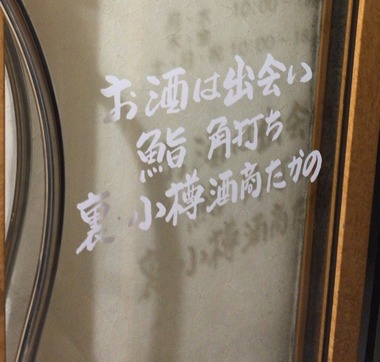 お酒は出会い
鮨 角打ち
裏 小樽酒商たかの